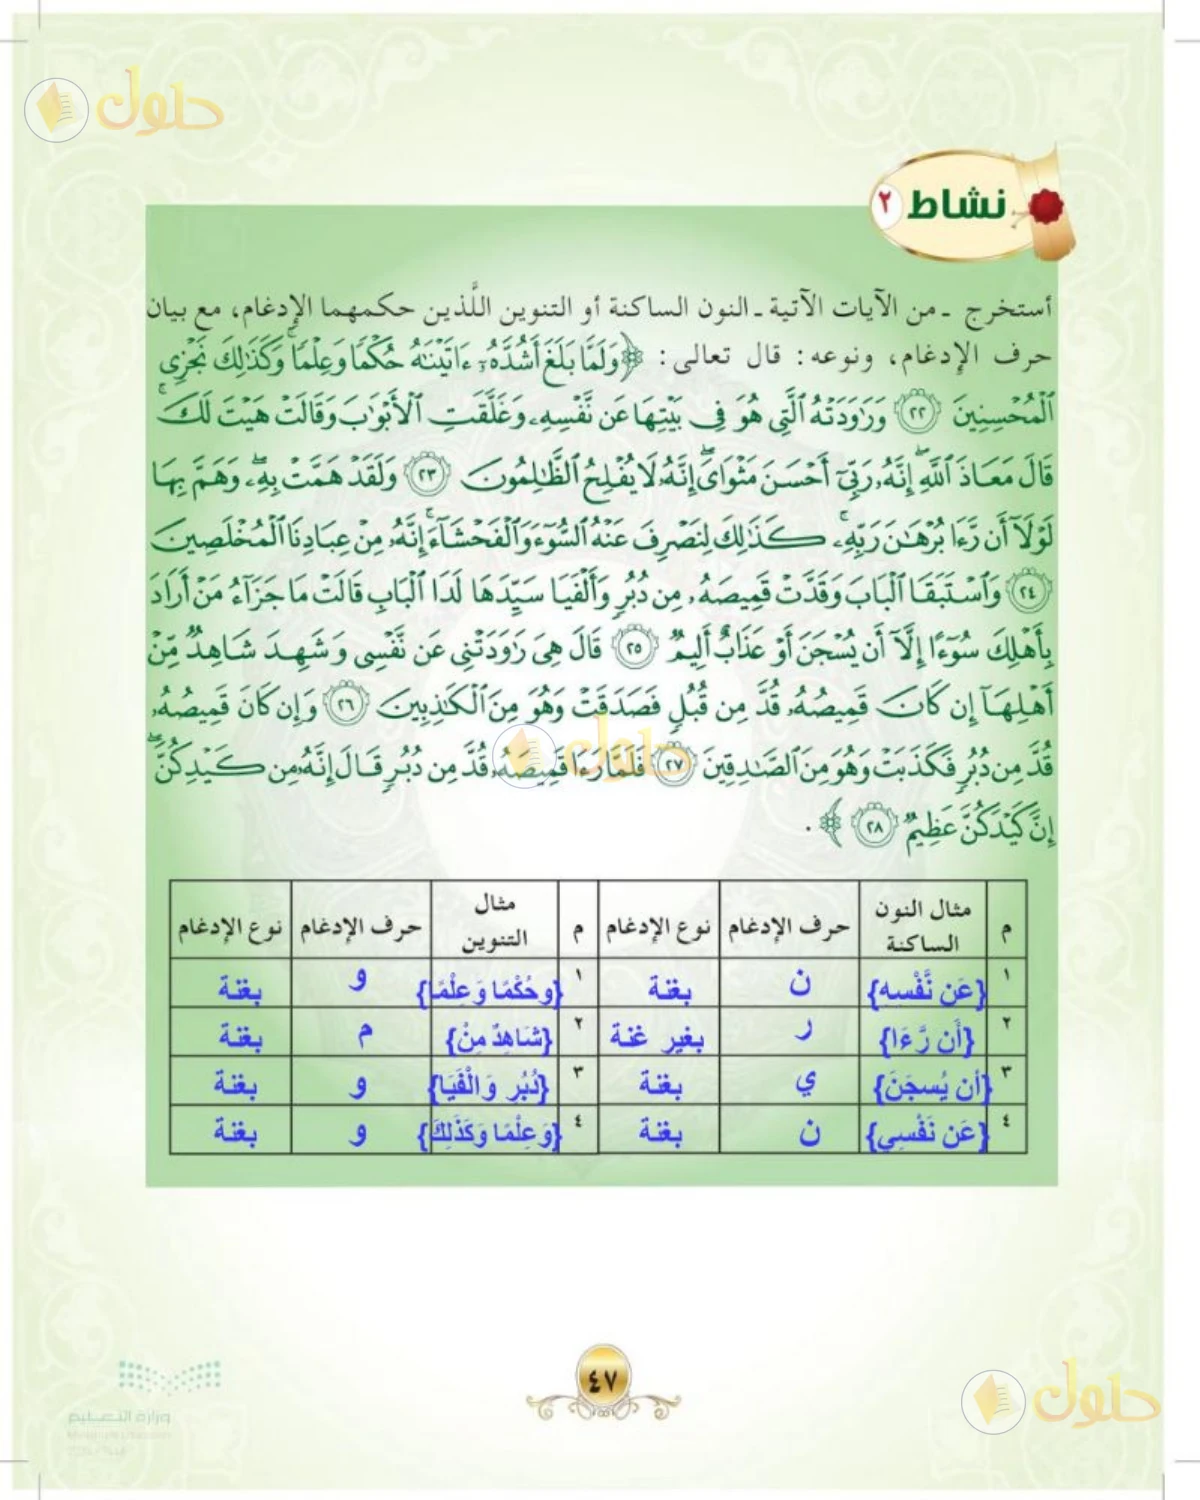 حلول
نشاط ٢
أستخرج - من الآيات الآتية - النون الساكنة أو التنوين اللَّذين حكمهما الإدغام، مع بيان
حرف الإدغام، ونوعه: قال تعالى: ﴿وَلَمَّا بَلَغَ أَشُدَّهُۥٓ ءَاتَيْنَـٰهُ حُكْمًا وَعِلْمًا ۚ وَكَذَٰلِكَ نَجْزِى
ٱلْمُحْسِنِينَ ٢٢ وَرَٰوَدَتْهُ ٱلَّتِى هُوَ فِى بَيْتِهَا عَن نَّفْسِهِۦ وَغَلَّقَتِ ٱلْأَبْوَٰبَ وَقَالَتْ هَيْتَ لَكَ ۚ
قَالَ مَعَاذَ ٱللَّهِ ۖ إِنَّهُۥ رَبِّىٓ أَحْسَنَ مَثْوَاىَ ۖ إِنَّهُۥ لَا يُفْلِحُ ٱلظَّـٰلِمُونَ ٢٣ وَلَقَدْ هَمَّتْ بِهِۦ ۖ وَهَمَّ بِهَا
لَوْلَآ أَن رَّءَا بُرْهَـٰنَ رَبِّهِۦ ۚ كَذَٰلِكَ لِنَصْرِفَ عَنْهُ ٱلسُّوٓءَ وَٱلْفَحْشَآءَ ۚ إِنَّهُۥ مِنْ عِبَادِنَا ٱلْمُخْلَصِينَ
٢٤ وَٱسْتَبَقَا ٱلْبَابَ وَقَدَّتْ قَمِيصَهُۥ مِن دُبُرٍ وَأَلْفَيَا سَيِّدَهَا لَدَا ٱلْبَابِ قَالَتْ مَا جَزَآءُ مَنْ أَرَادَ
بِأَهْلِكَ سُوٓءًا إِلَّآ أَن يُسْجَنَ أَوْ عَذَابٌ أَلِيمٌ ٢٥ قَالَ هِىَ رَٰوَدَتْنِى عَن نَّفْسِى وَشَهِدَ شَاهِدٌ مِّنْ
أَهْلِهَآ إِن كَانَ قَمِيصُهُۥ قُدَّ مِن قُبُلٍ فَصَدَقَتْ وَهُوَ مِنَ ٱلْكَـٰذِبِينَ ٢٦ وَإِن كَانَ قَمِيصُهُۥ
قُدَّ مِن دُبُرٍ فَكَذَبَتْ وَهُوَ مِنَ ٱلصَّـٰدِقِينَ ٢٧ فَلَمَّا رَءَا قَمِيصَهُۥ قُدَّ مِن دُبُرٍ قَالَ إِنَّهُۥ مِن كَيْدِكُنَّ ۖ
إِنَّ كَيْدَكُنَّ عَظِيمٌ ٢٨﴾.
حلول
م مثال النون الساكنة حرف الإدغام نوع الإدغام م مثال التنوين حرف الإدغام نوع الإدغام
١ {عَن نَّفْسِهِ} ن بغنة ١ {وحُكْمًا وَعِلْمًا} و بغنة
٢ {أَن رَّءَا} ر بغير غنة ٢ {شَاهِدٌ مِنْ} م بغنة
٣ {أن يُسجَنَ} ي بغنة ٣ {دُبُرٍ وَالْفَيَا} و بغنة
٤ {عَن نَفْسِي} ن بغنة ٤ {وَعِلْمًا وَكَذَلِكَ} و بغنة
٤٧
وزارة التعليم
حلول